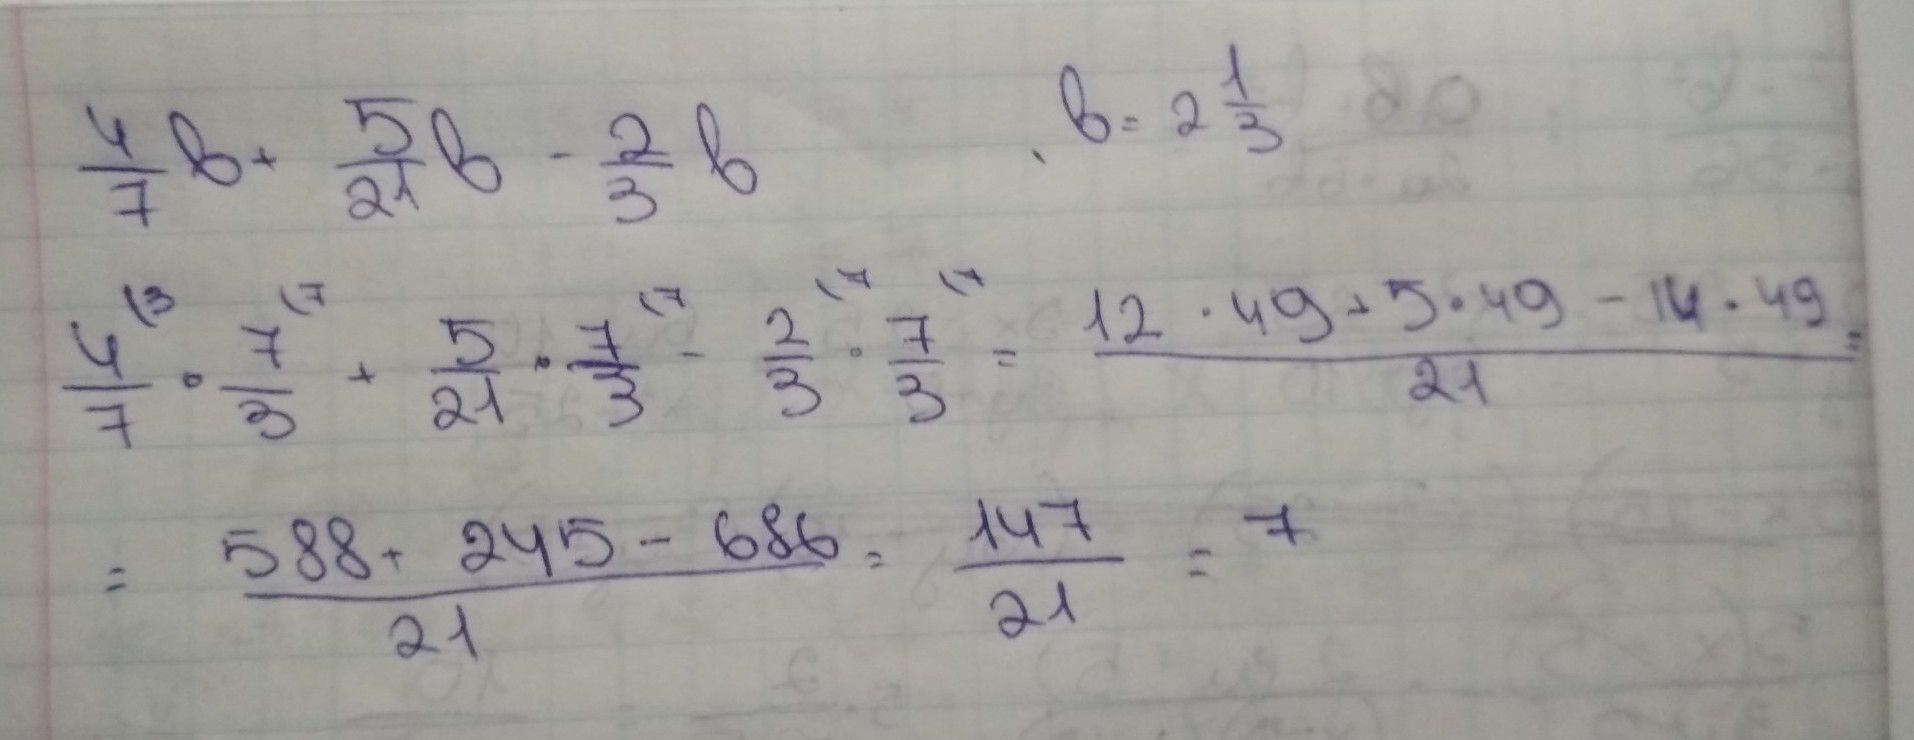 4/7 в + 5/21 в - 2/3 в , в = 2 1/3
4/7 (3 · 7/3 (7 + 5/21 · 7/3 (7 - 2/3 (7 · 7/3 (7 = (12 · 49 + 5 · 49 - 14 · 49)/21 =
= (588 + 245 - 686)/21 = 147/21 = 7